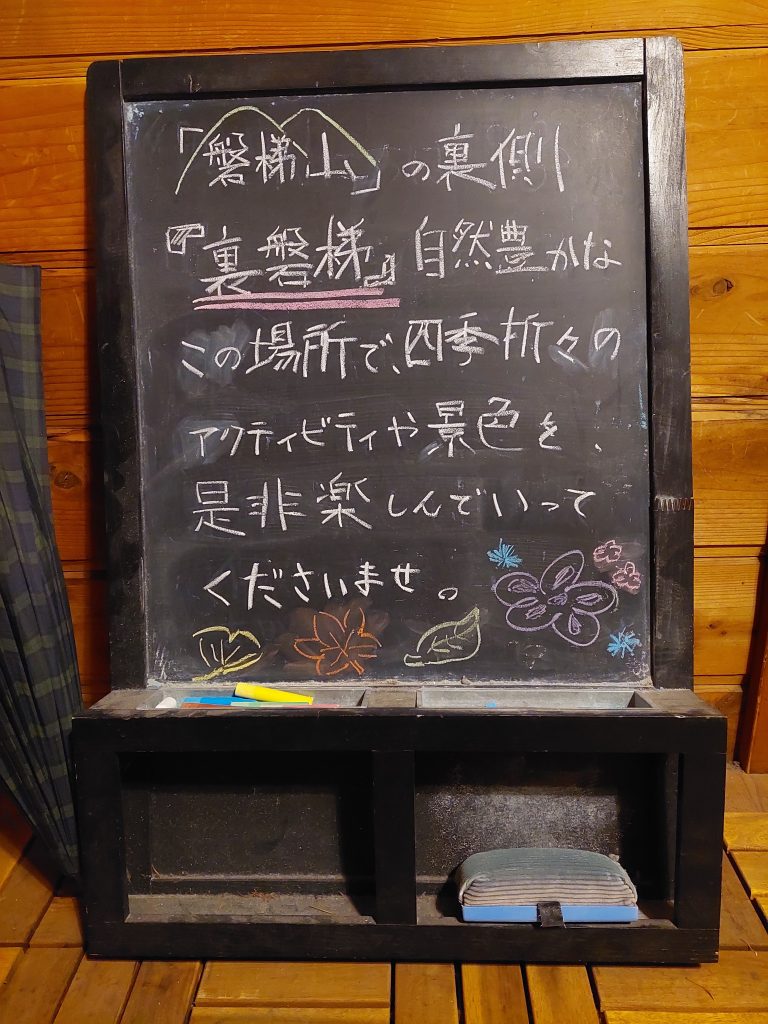 「磐梯山」の裏側
『裏磐梯』自然豊かな
この場所で、四季折々の
アクティビティや景色を、
是非楽しんでいって
くださいませ。